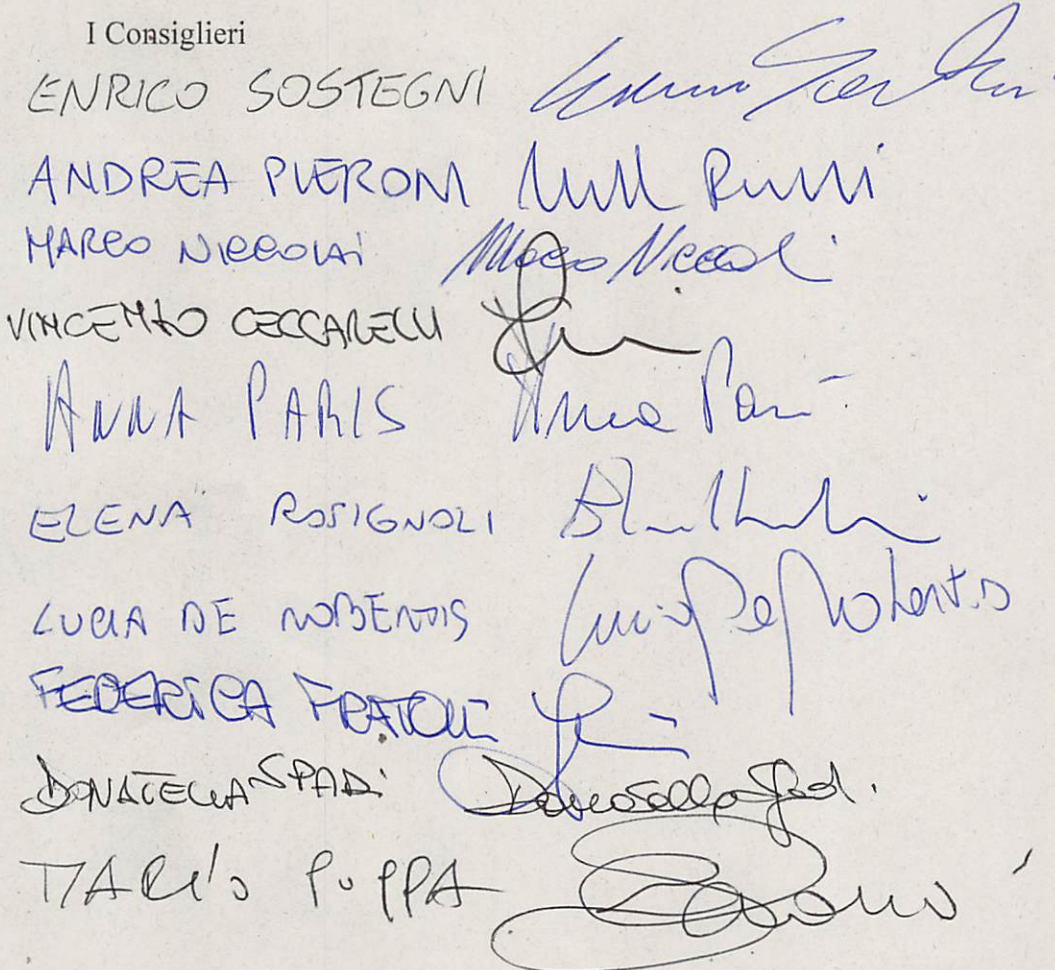 I Consiglieri
ENRICO SOSTEGNI
ANDREA PIERONI
MARCO NICCOLAI Marco Niccolai
VINCENZO CECCARELLI
ANNA PARIS Anna Paris
ELENA ROSIGNOLI
LUCIA DE ROBERTIS Lucia De Robertis
FEDERICA FRATONI
DONATELLA SPADI Donatella Spadi
MARIO PUPPA